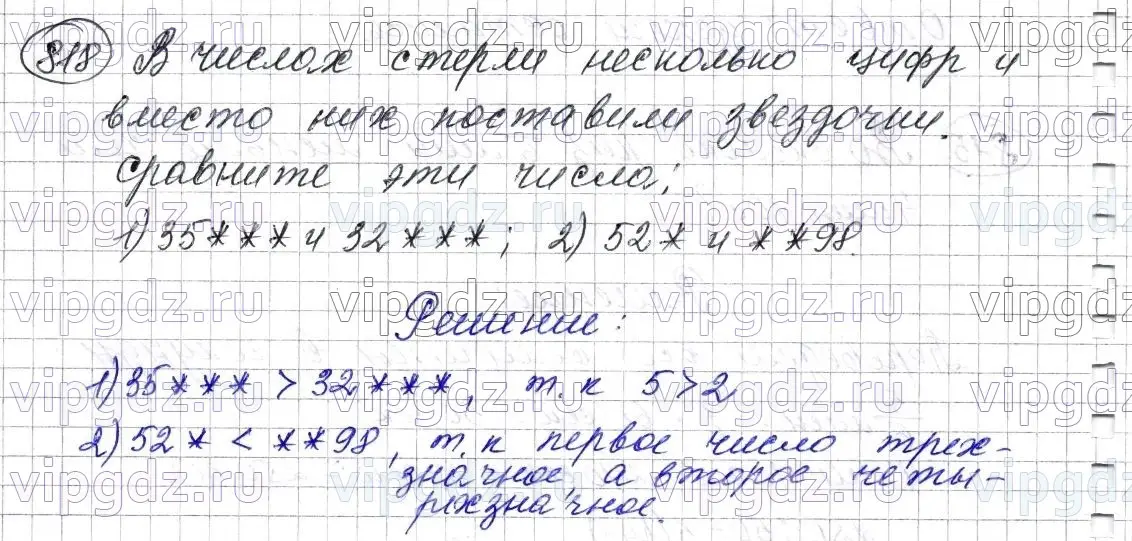 818 В числах стерли несколько цифр и
вместо них поставили звездочки.
Сравните эти числа:
1) 35*** и 32***; 2) 52* и **98.
Решение:
1) 35*** > 32***, т.к 5>2
2) 52* < **98, т.к первое число трех-
значное, а второе четы-
рехзначное.
vipgdz.ru